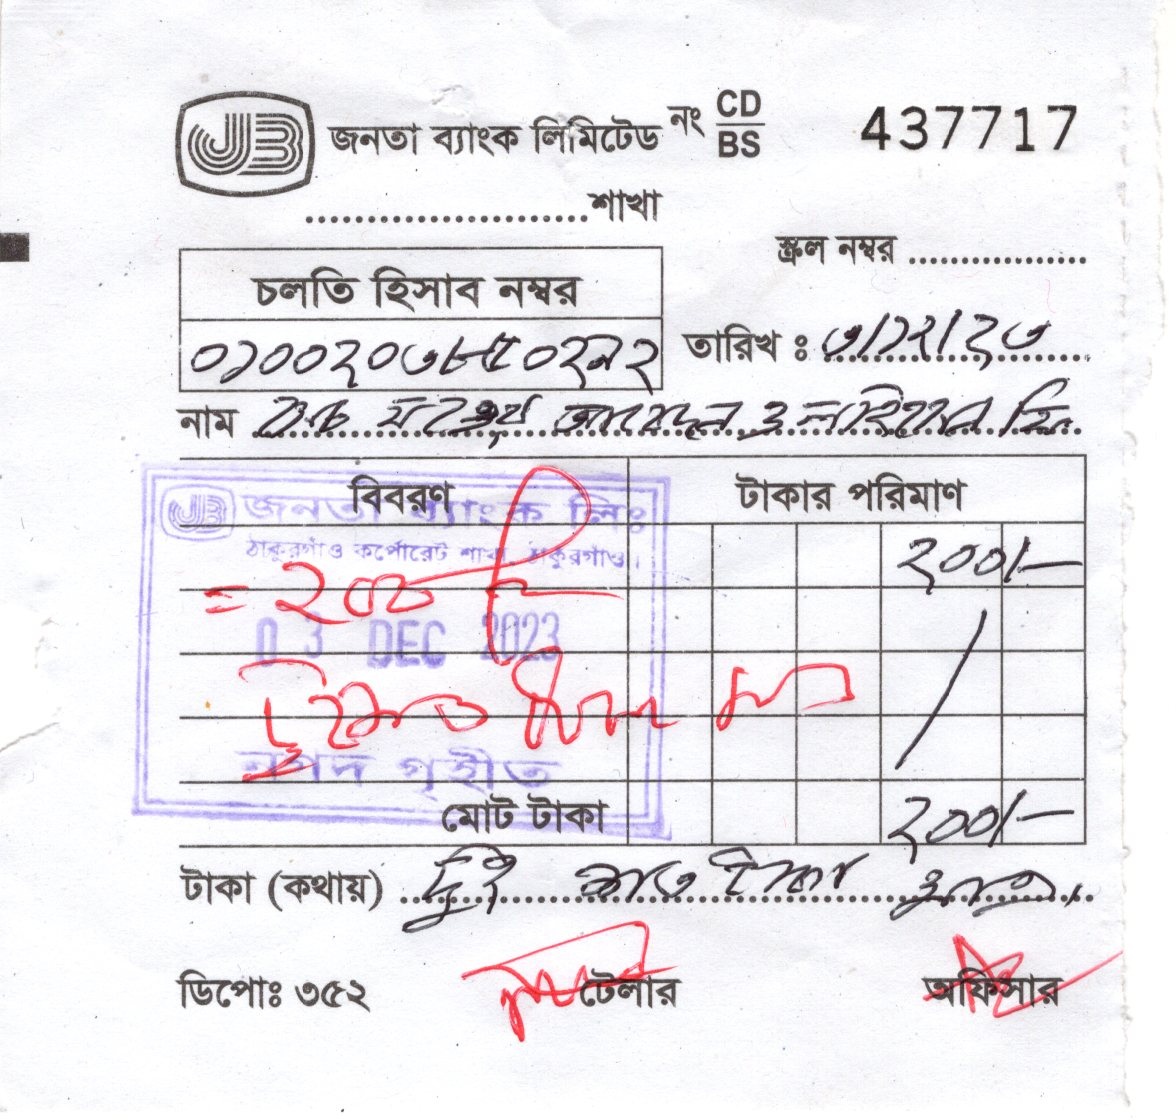 JB জনতা ব্যাংক লিমিটেড নং CD/BS 437717
......................শাখা
স্ক্রল নম্বর ................
চলতি হিসাব নম্বর
০১০০২০৩৮৫০২৯২
তারিখ ঃ ৩/১২/২৩
নাম
বিবরণ টাকার পরিমাণ
JB জনতা ব্যাংক লিঃ
ঠাকুরগাঁও কর্পোরেট শাখা, ঠাকুরগাঁও।
২০০/-
= ২০০
03 DEC 2023
দুইশত টাকা মাত্র
নগদ গৃহীত
মোট টাকা ২০০/-
টাকা (কথায়) দুই শত টাকা মাত্র
ডিপোঃ ৩৫২ টেলার অফিসার